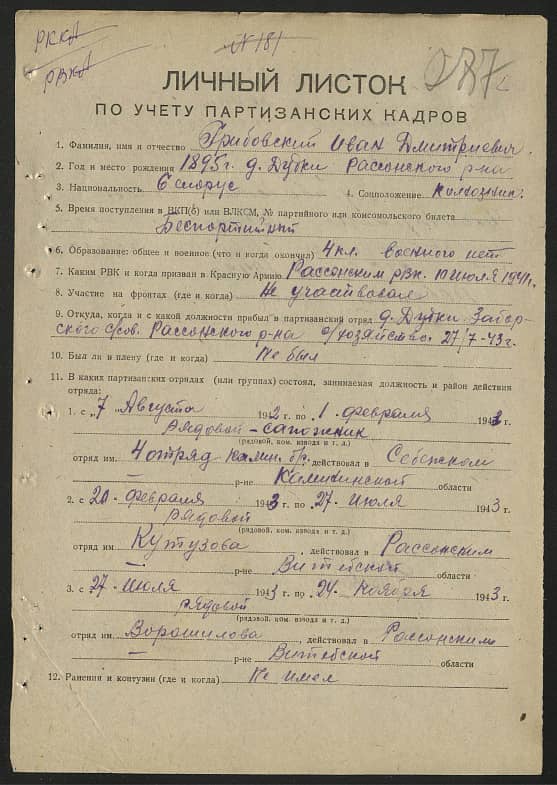 РККА
РВКА
№ 181
287
ЛИЧНЫЙ ЛИСТОК
ПО УЧЕТУ ПАРТИЗАНСКИХ КАДРОВ
1. Фамилия, имя и отчество Грибовский Иван Дмитриевич.
2. Год и место рождения 1895г. д. Дудки Рассонского р-на
3. Национальность Белорус 4. Соцположение колхозник.
5. Время поступления в ВКП(б) или ВЛКСМ, № партийного или комсомольского билета
Беспортийный
6. Образование: общее и военное (что и когда окончил) 4 кл. военного нет
7. Каким РВК и когда призван в Красную Армию Рассонским РВК. 10 июля 1941г.
8. Участие на фронтах (где и когда) Не участвовал
9. Откуда, когда и с какой должности прибыл в партизанский отряд д. Дудки Забор-
ского с/сов. Рассонского р-на с/хозяйство. 27/7-43 г.
10. Был ли в плену (где и когда) Не был
11. В каких партизанских отрядах (или группах) состоял, занимаемая должность и район действия
отряда:
1. с „7 Августа 1942 г. по 1 февраля 1943
Рядовой - сапожник
(рядовой, ком. взвода и т. д.)
отряд им. 4 отряд Калин. бр. действовал в Себежском
р-не Калининской области
2. с 20 - февраля 1943 г. по 27 - июля 1943 г.
рядовой
(рядовой, ком. взвода и т. д.)
отряд им. Кутузова, действовал в Рассонским
— р-не Витебской области
3. с 27 - июля 1943 г. по 24 - ноября 1943 г.
рядовой
(рядовой, ком. взвода и т. д.)
отряд им. Ворошилова, действовал в Рассонским
— р-не Витебской области
12. Ранения и контузии (где и когда) Не имел